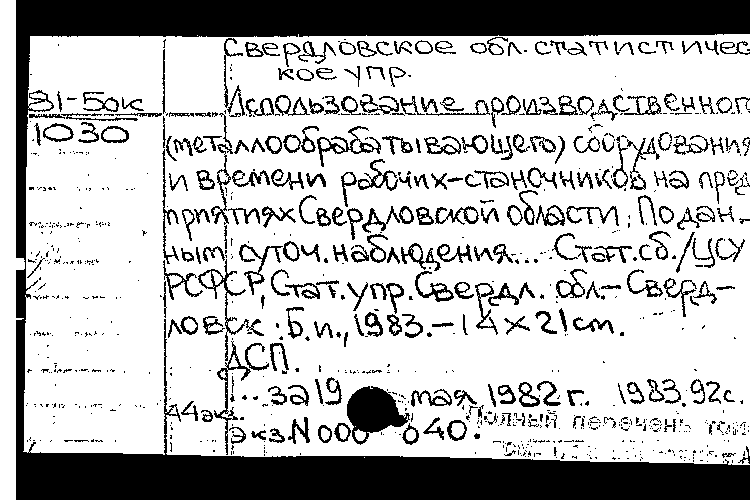 Свердловское обл. статистичес-
кое упр.
81-5ок
1030
Использование производственного
(металлообрабатывающего) оборудования
и времени рабочих-станочников на пред
приятиях Свердловской области. По дан-
ным суточ. наблюдения... Стат. сб./ЦСУ
РСФСР, Стат. упр. Свердл. обл.- Сверд-
ловск : Б.и., 1983.-14×21cm.
ДСП.
... за 19 мая 1982 г. 1983.92с.
44экз.
экз.N 000 040.
Полный перечень том